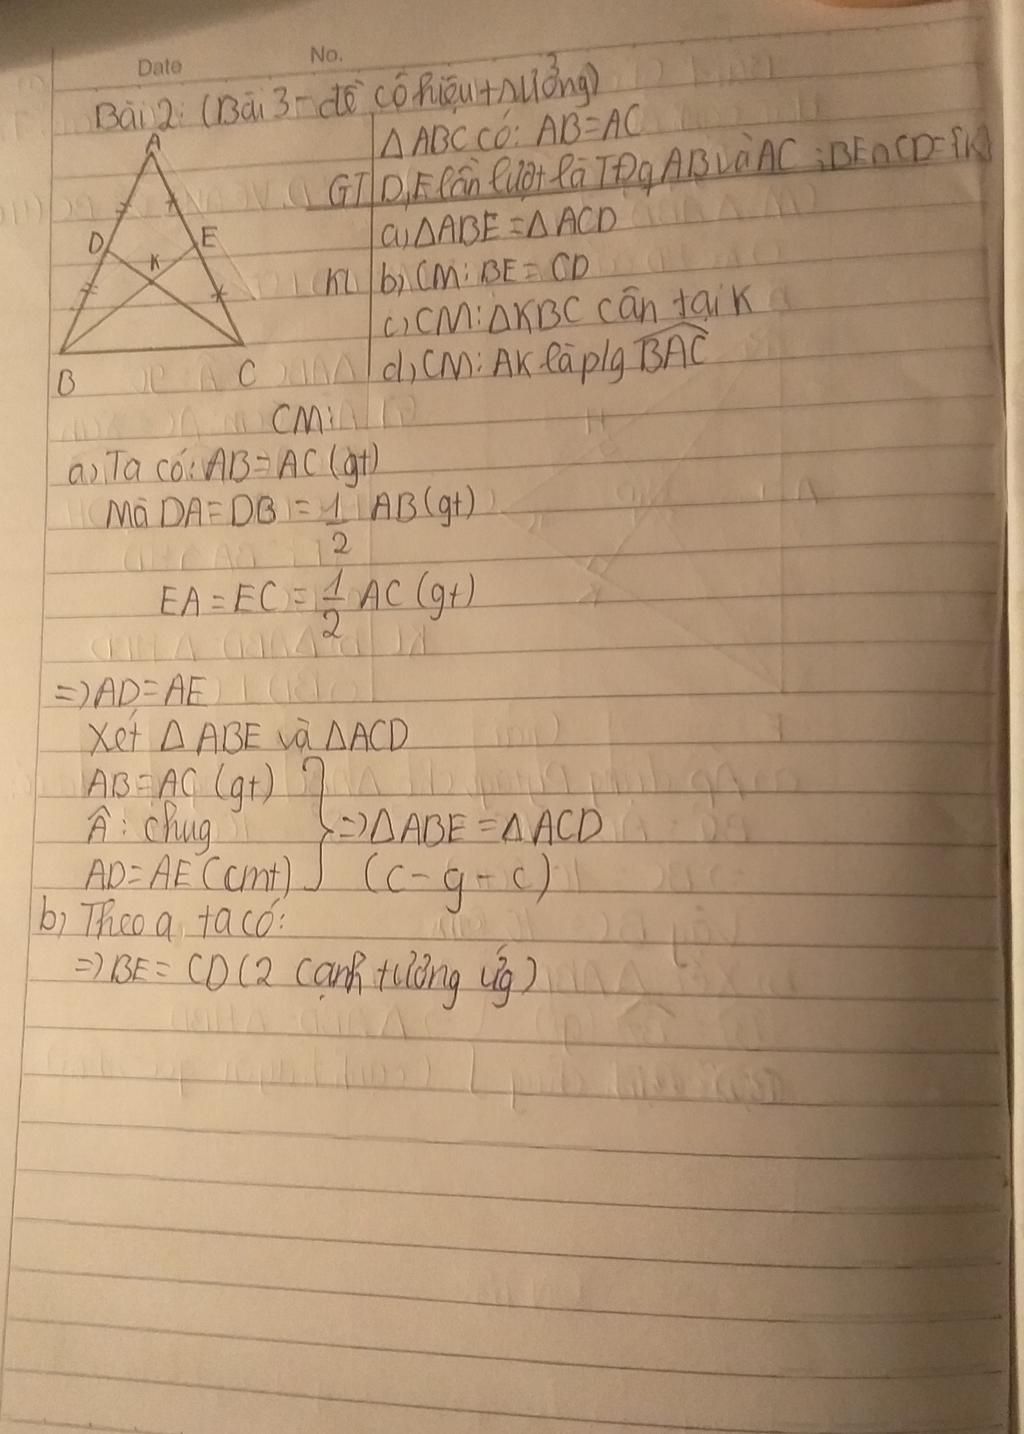 Date No.
Bài 2: (Bài 3 - đề cô hiệu trưởng)
A
△ ABC có: AB = AC
GT D, E lần lượt là TĐ q AB và AC ; BE ∩ CD = {K}
D E K
a, △ABE = △ACD
KL b, CM: BE = CD
c, CM: △KBC cân tại K
B C d, CM: AK là p/g BAC
CM:
a, Ta có: AB = AC (gt)
Mà DA = DB = 1/2 AB (gt)
EA = EC = 1/2 AC (gt)
=> AD = AE
Xét △ ABE và △ACD
AB = AC (gt)
Â : chug => △ABE = △ACD
AD = AE (cmt) (c - g - c)
b, Theo a, ta có:
=> BE = CD (2 cạnh tương ứg)